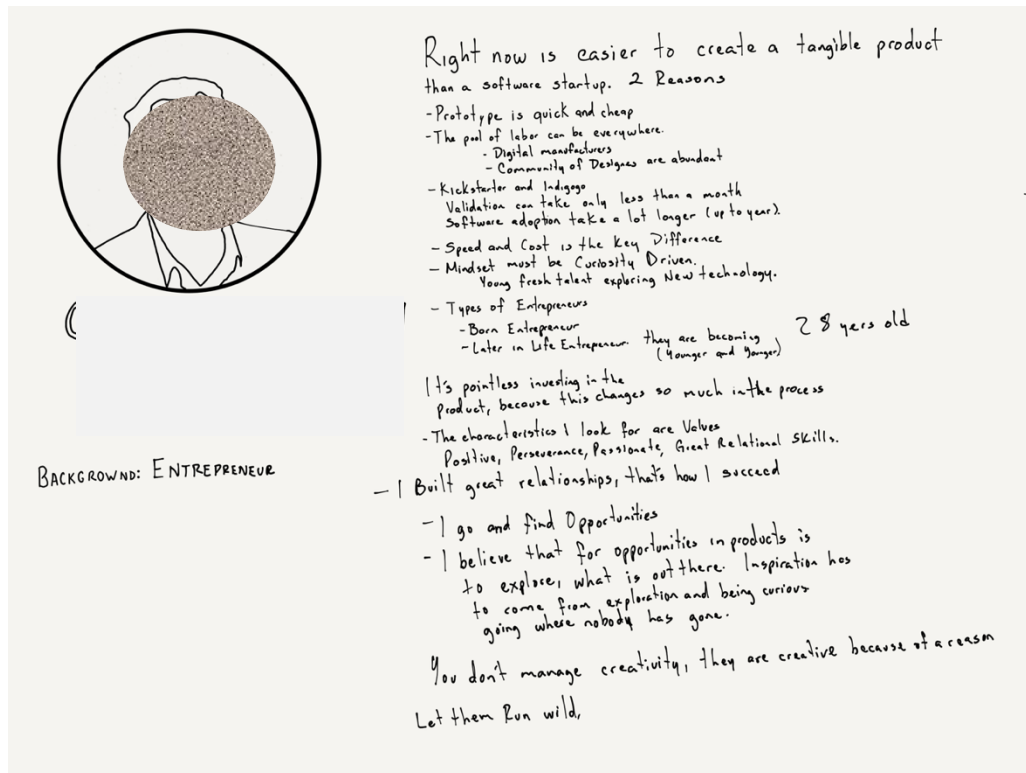 Right now is easier to create a tangible product
than a software startup. 2 Reasons
- Prototype is quick and cheap
- The pool of labor can be everywhere.
- Digital manufacturers
- Community of Designes are abundant
- Kickstarter and Indigogo
Validation can take only less than a month
Software adoption take a lot longer (up to year).
- Speed and Cost is the Key Difference
- Mindset must be Curiosity Driven.
Young fresh talent exploring New technology.
- Types of Entrepreneurs
- Born Entrepreneur
- Later in Life Entrepreneur. they are becoming 28 yers old
(Younger and Younger)
It's pointless investing in the
product, because this changes so much in the process
- The characteristics I look for are Values
Positive, Perseverance, Passionate, Great Relational Skills.
BACKGROWND: ENTREPRENEUR
- I Built great relationships, that's how I succeed
- I go and find Opportunities
- I believe that for opportunities in products is
to explore, what is out there. Inspiration has
to come from exploration and being curious
going where nobody has gone.
You don't manage creativity, they are creative because of a reason
Let them Run wild,